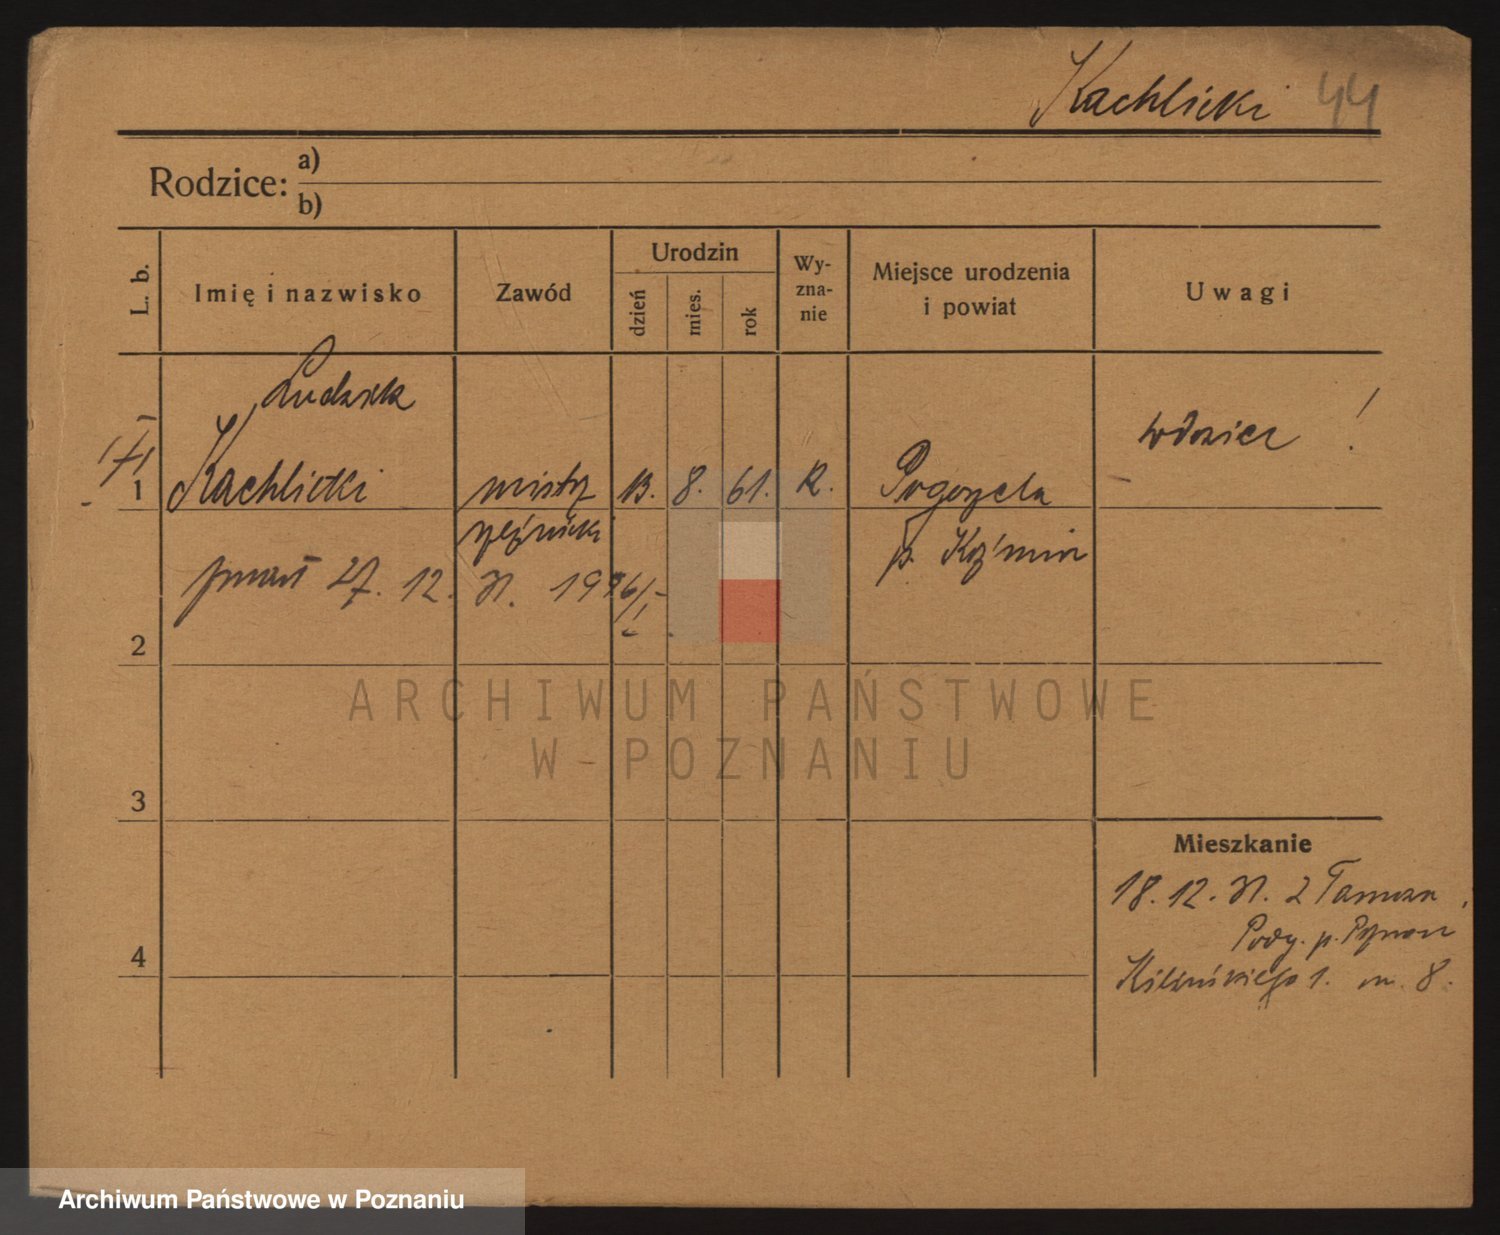 Kachlicki 44
Rodzice: a)
b)
L. b.
Imię i nazwisko
Zawód
Urodzin
dzień
mies.
rok
Wy-
zna-
nie
Miejsce urodzenia
i powiat
Uwagi
Ludwik
1 Kachlicki mistrz 13. 8. 61. R. Pogorzela
wdowiec !
rzeźnicki p. Koźmin
zmarł 27. 12.
2
ARCHIWUM PAŃSTWOWE
W POZNANIU
3
Mieszkanie
18. 12. 31. z
4
p. Poznań
Kilińskiego 1. m. 8.
Archiwum Państwowe w Poznaniu